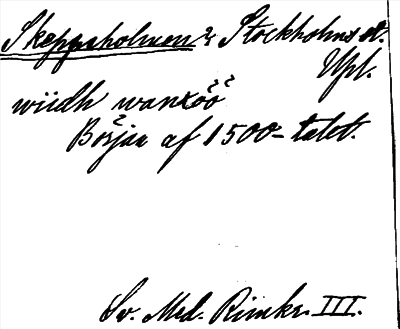 Skeppsholmen, Stockholms st.
Upl.
wiidh wanxöö
Början af 1500-talet.
Sv. Med. Rimkr. III.